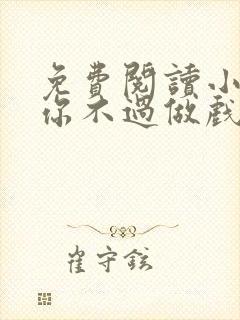 免費閱讀小
你不過做戲
崔守鉉